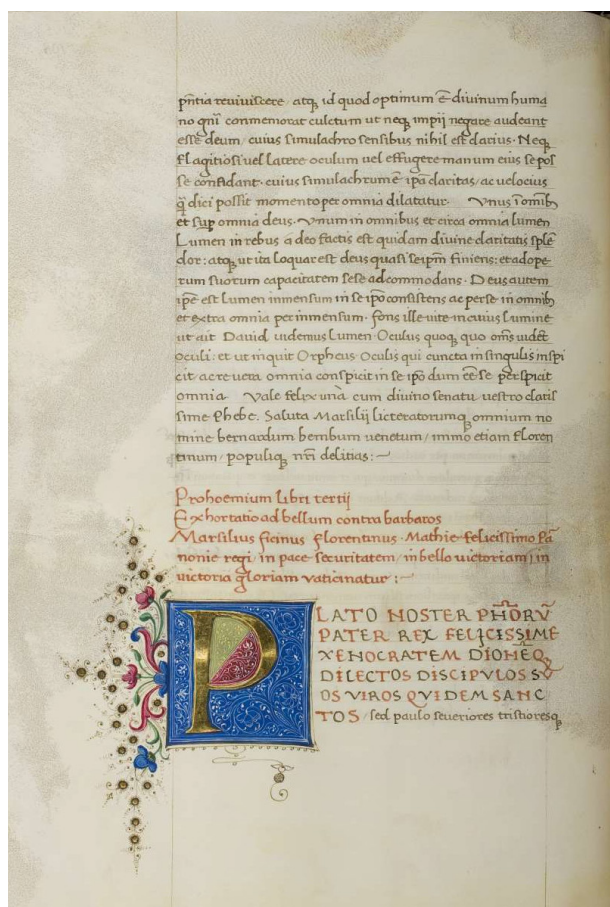 pñtia reviviscere / atq; id quod optimum ẽ divinum huma
no gñi conmemorat cultum ut neq; impij negare audeant
esse deum / cuius simulachro sensibus nihil est clarius · Neq;
flagitiosi vel latere oculum vel effugere manum eius se pos
se confidant · cuius simulachrum ẽ ipa claritas / ac velocius
q̃ dici possit momento per omnia dilatatur. Vnus ĩ omnib;
et sup omnia deus · Vnum in omnibus et circa omnia lumen
Lumen in rebus a deo factis est quidam divine claritatis splẽ
dor : atq; ut ita loquar est deus quasi seipm finiens : et ad ope
rum suorum capacitatem sese adcommodans · Deus autem
ipe est lumen inmensum in se ipo consistens ac per se in omnib;
et extra omnia per inmensum · fons ille vite in cuius lumine
ut ait David videmus lumen · Oculus quoq; quo oms videt
oculi : et ut inquit Orpheus · Oculis qui cuncta in singulis inspi
cit ac re vera omnia conspicit in se ipo dum ẽe se perspicit
omnia Vale felix una cum divino senatu vestro claris
sime Phebe. Saluta Marsilij licteratorumq; omnium no
mine bernardum bembum venetum / immo etiam floren
tinum / populiq; nri delitias :~
Prohoemium libri tertij
Exhortatio ad bellum contra barbaros
Marsilius ficinus florentinus · Mathie felicissimo Pã
nonie regi / in pace securitatem / in bello victoriam / in
victoria gloriam vaticinatur :~
PLATO NOSTER PHORV̄
PATER REX FELICISSIME
XENOCRATEM DIONEQ;
DILECTOS DISCIPVLOS SV
OS VIROS QVIDEM SANC
TOS / sed paulo severiores tristioresq;